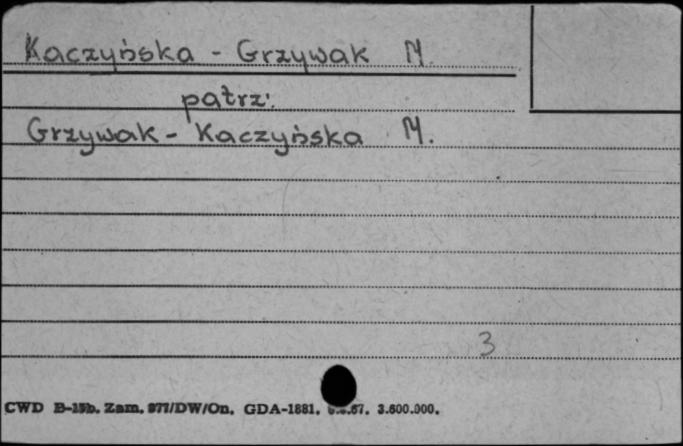 Kaczyńska - Grzywak M.
patrz:
Grzywak - Kaczyńska M.
3
CWD B-15b. Zam. 977/DW/On. GDA-1881. 3.600.000.